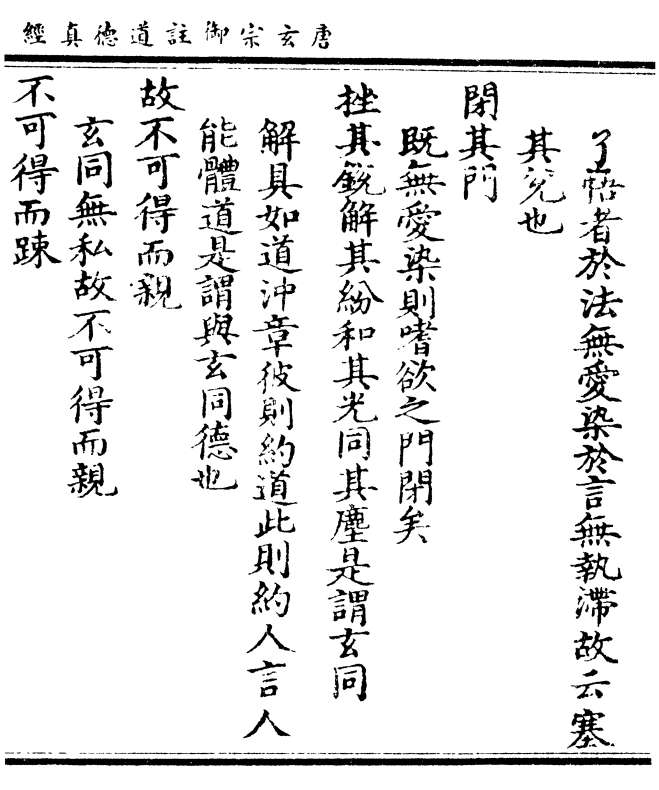 唐玄宗御註道德真經
了悟者於法無愛染於言無執滯故云塞
其兊也
閉其門
既無愛染則嗜欲之門閉矣
挫其銳解其紛和其光同其塵是謂玄同
解具如道沖章彼則約道此則約人言人
能體道是謂與玄同德也
故不可得而親
玄同無私故不可得而親
不可得而踈